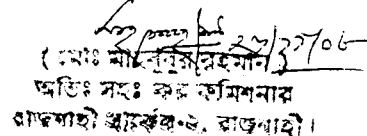 ২৯/১১/০৮
( মোঃ মাহবুবুর রহমান )
অতিঃ সহঃ কর কমিশনার
রাজশাহী সার্কেল-৬, রাজশাহী।